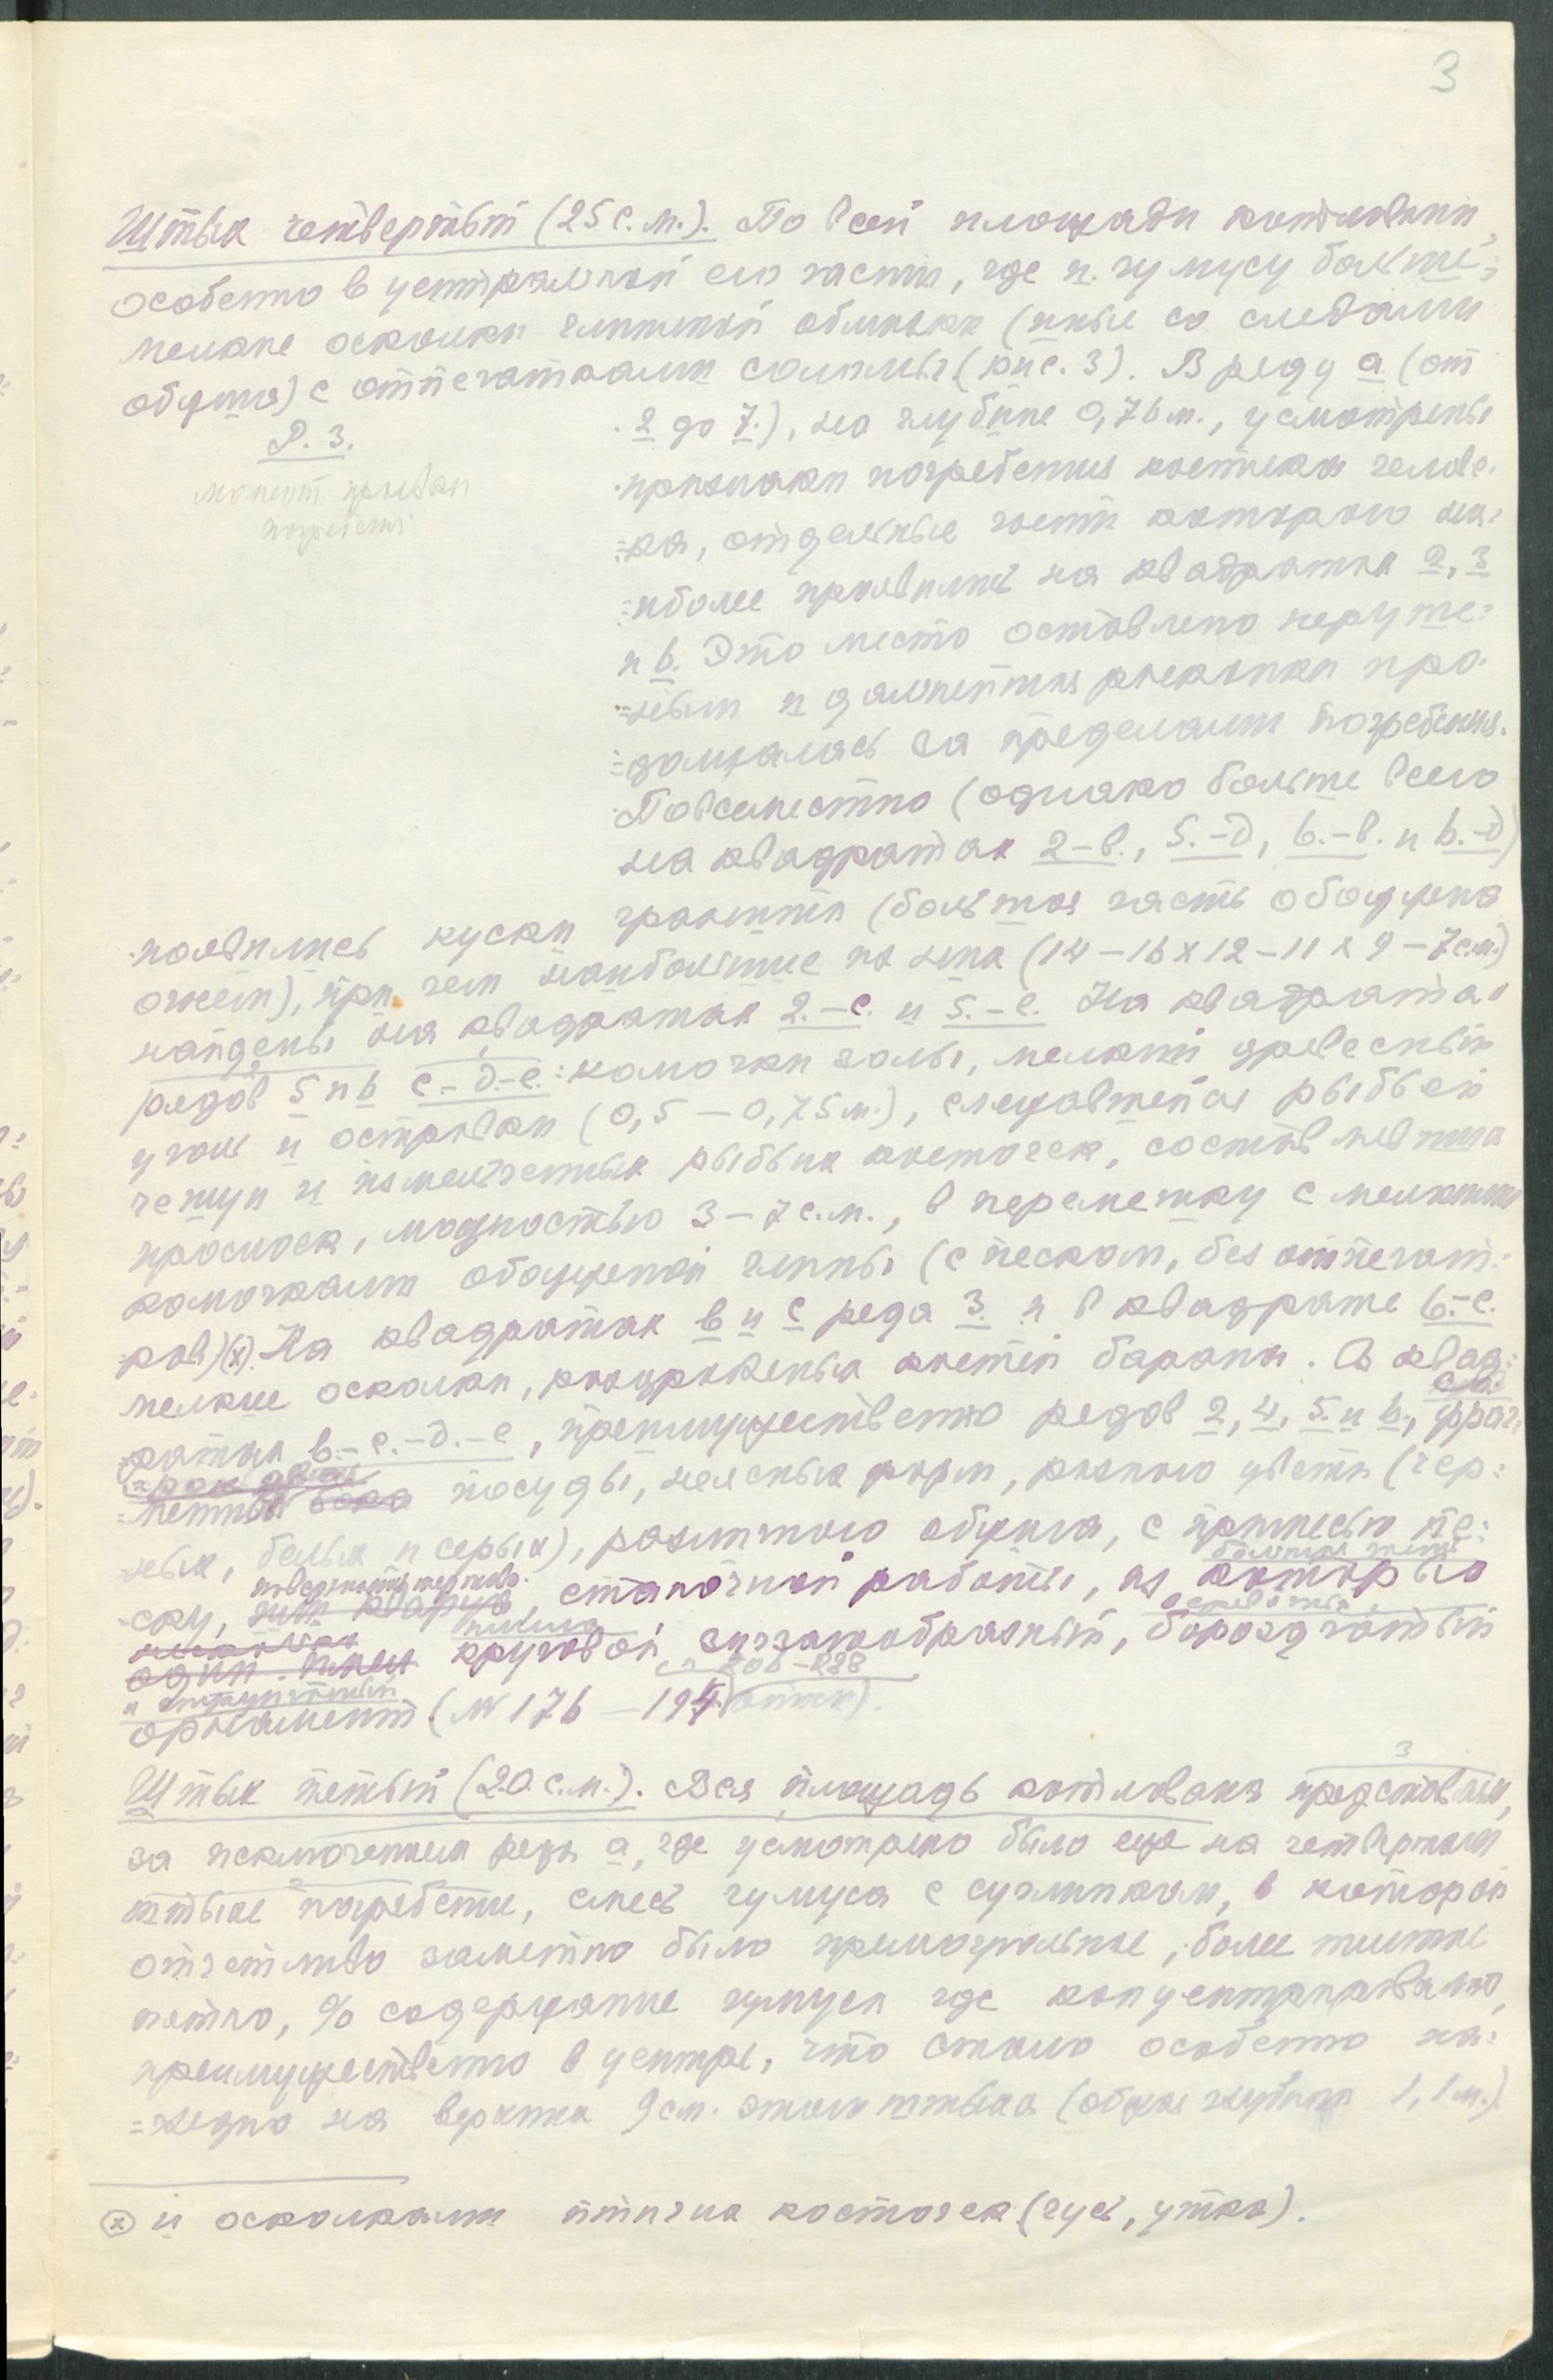 3
Штык четвертый (25 с.м.). По всей площади котлована,
особенно в центральной его части, где и гумусу больше,-
мелкие осколки глиняной обмазки (иные со следами
обжига) с отпечатками соломы (рис. 3). В ряду а (от
2 до 7.), на глубине 0,76 м., усмотрены
Р. 3.
признаки погребения костяка челове-
момент
погребения
=ка, отдельные кости которого на-
=иболее проявились на квадратах 2, 3
и 6. Это место оставлено неруше-
=ным и дальнейшая раскопка про-
=должалась за пределами погребения.
Повсеместно (однако больше всего
на квадратах 2-в., 5.-д, 6.-в. и 6.-д)
появились куски гранита (большая часть обожжена
огнем), при чем наибольшие из них (14-16 х 12-11 х 9-7 с.м.)
найдены на квадратах 2.-с. и 5.-е. На квадратах
рядов 5 и 6 с.-д.-е.: комочки золы, мелкий древесный
уголь и островки (0,5-0,75 м.), слежавшейся рыбьей
чешуи и измельченных рыбьих косточек, составлявших
прослоек, мощностью 3-7 с.м., в перемежку с мелкими
комочками обожженой глины (с песком, без отпечат-
ков)(х). На квадратах в и с ряда 3. и в квадрате 6.-с.
мелкие осколки, раздробленых костей барана. В квад-
ратах в.-с.-д.-е, преимущественно рядов 2, 4, 5. и 6., фраг-
=менты посуды, неясных форм, разного цвета (чер-
ных, белых и серых), различного обжига, с примесью пе-
ску, станочной работы, из которых
круговой зигзагообразный, бороздчатый
орнамент (№ 176-194)
206-228
Штык пятый (20 с.м.). Вся площадь котлована представляла,
за исключением ряда а, где усмотрено было еще на четвертом
штыке погребение, смесь гумуса с суглинком, в которой
отчетливо заметно было прямоугольное, более темное
пятно, % содержание гумуса где концентрировано,
преимущественно в центре, что стало особенно на-
=глядно на верхних 9 см. этого штыка (общая глубина 1,1 м.)
(х) и осколками птичих косточек (гусь, утка).